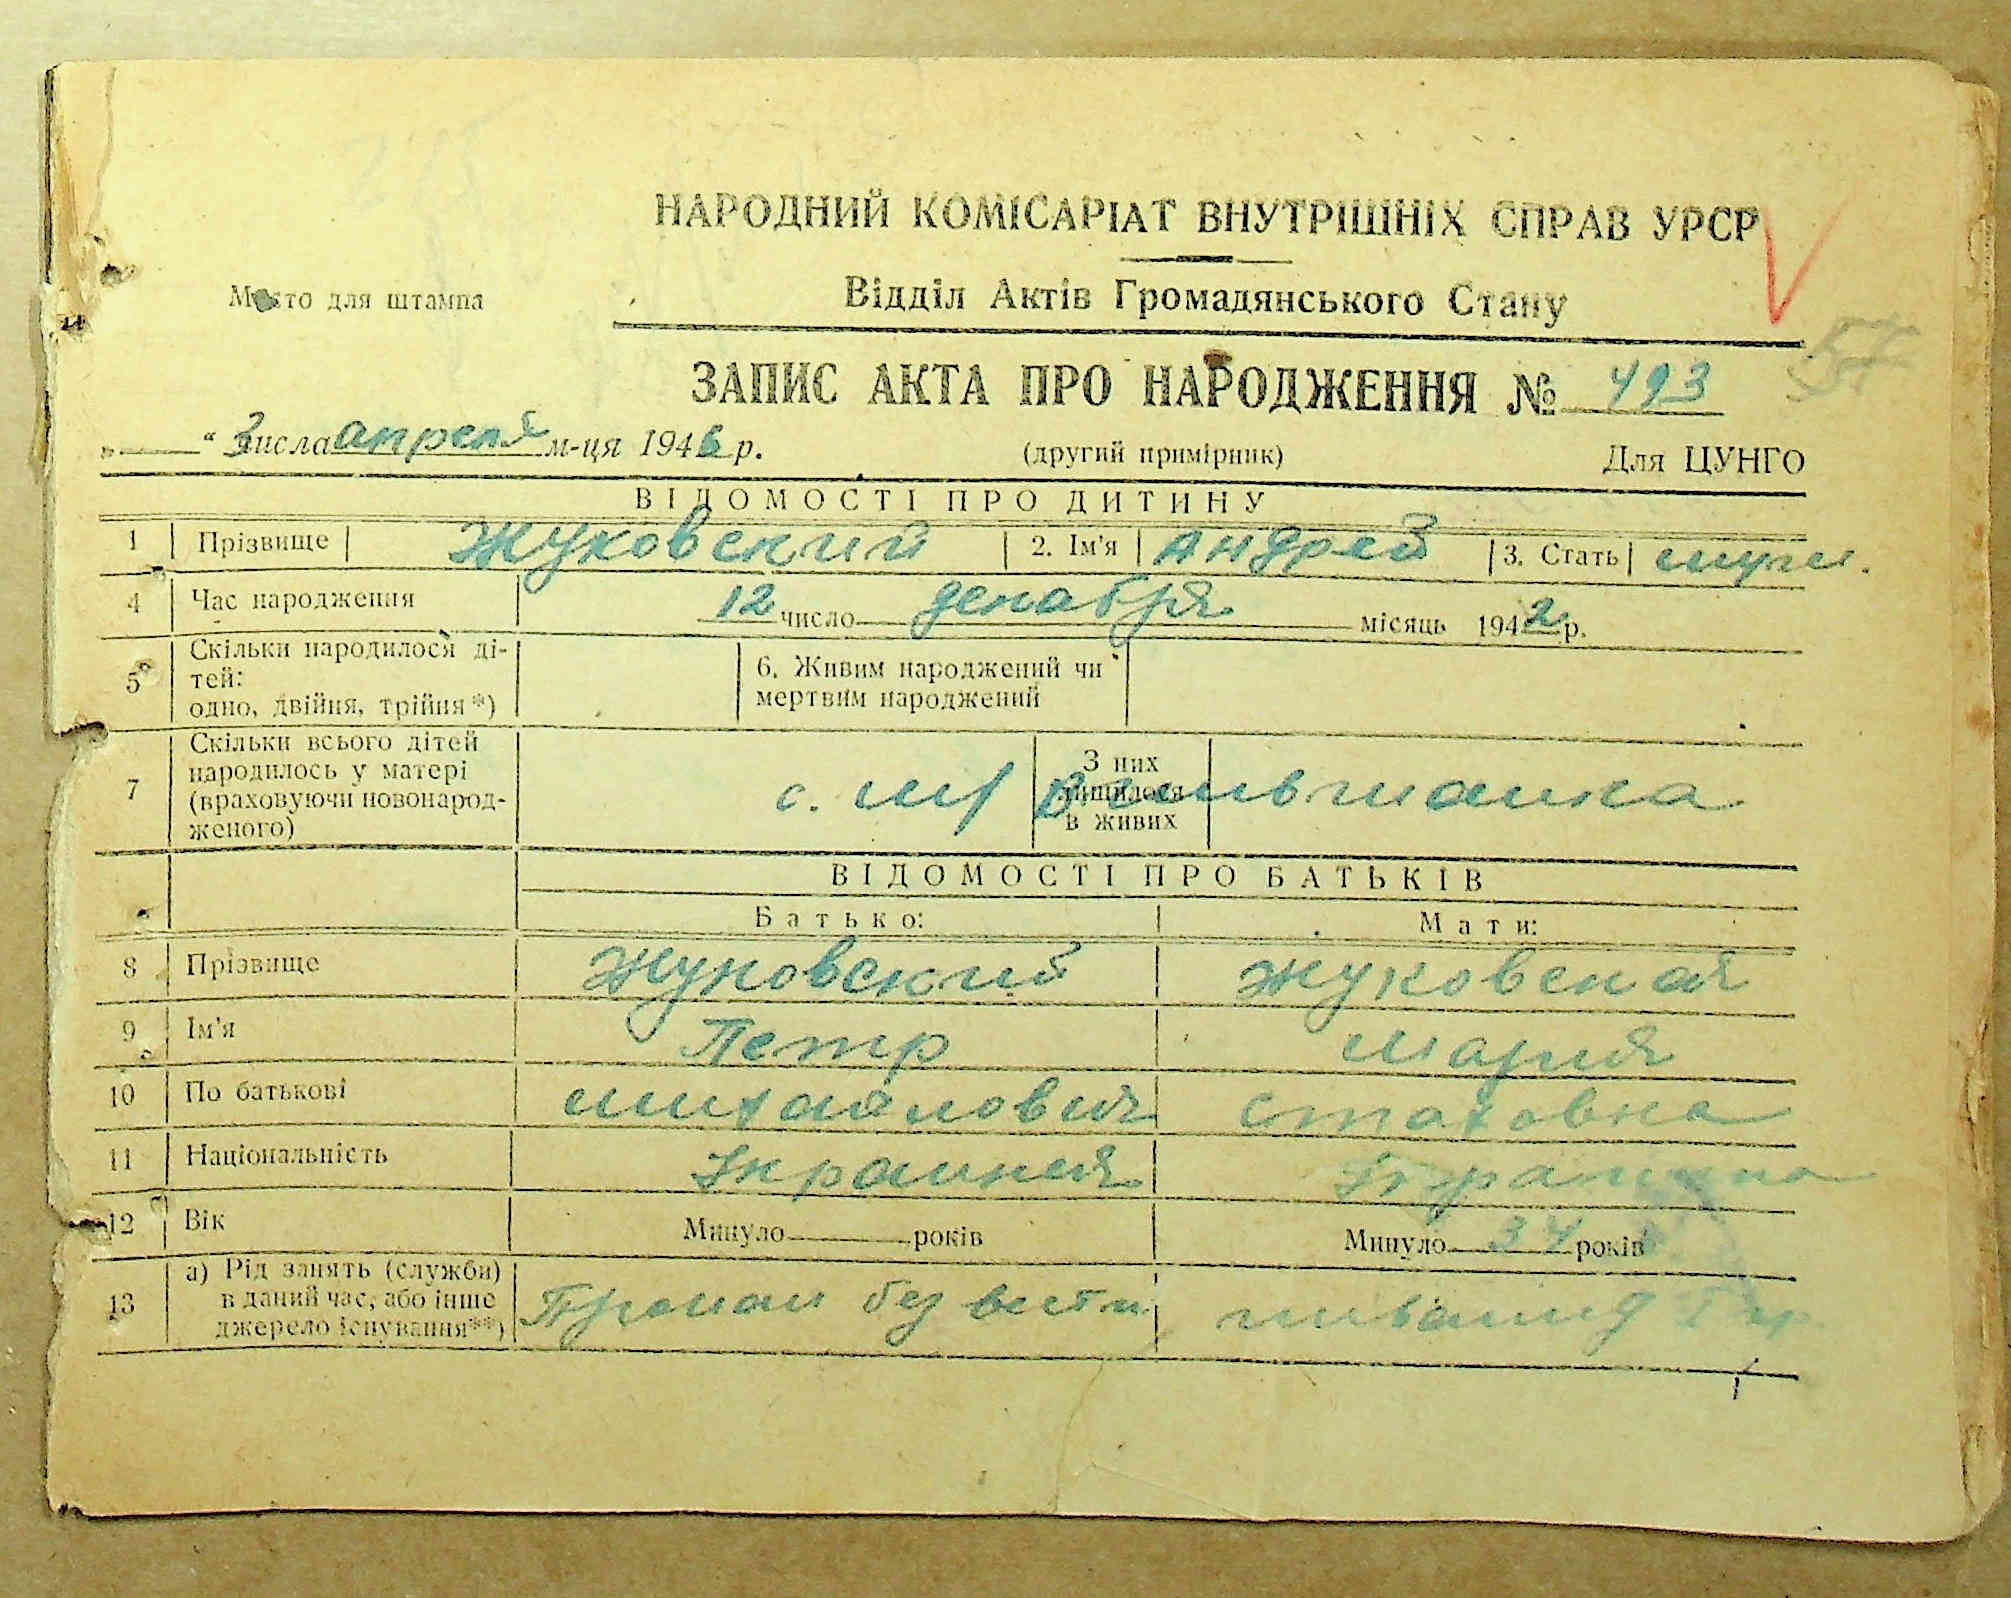 НАРОДНИЙ КОМІСАРІАТ ВНУТРІШНІХ СПРАВ УРСР
Місто для штампа
Відділ Актів Громадянського Стану
57
ЗАПИС АКТА ПРО НАРОДЖЕННЯ № 493
„ “ 3 числа апреля м-ця 1946 р. (другий примірник) Для ЦУНГО
ВІДОМОСТІ ПРО ДИТИНУ
1 Прізвище Жуковский 2. Ім'я Андрей 3. Стать муж.
4 Час народження 12 число декабря місяць 1942 р.
5 Скільки народилося ді-
тей:
одно, двійня, трійня *)
6. Живим народжений чи
мертвим народжений
7 Скільки всього дітей
народилось у матері
(враховуючи новонарод-
женого)
с. м/ Вильшанка
З них
лишилося
в живих
ВІДОМОСТІ ПРО БАТЬКІВ
Батько: Мати:
8 Прізвище Жуковский Жуковская
9 Ім'я Петр Мария
10 По батькові Михайлович Стаховна
11 Національність Украинец Украинка
12 Вік Минуло років Минуло 34 років
13 а) Рід занять (служби)
в даний час, або інше
джерело існування**)
Пропал без вести инвалид гр